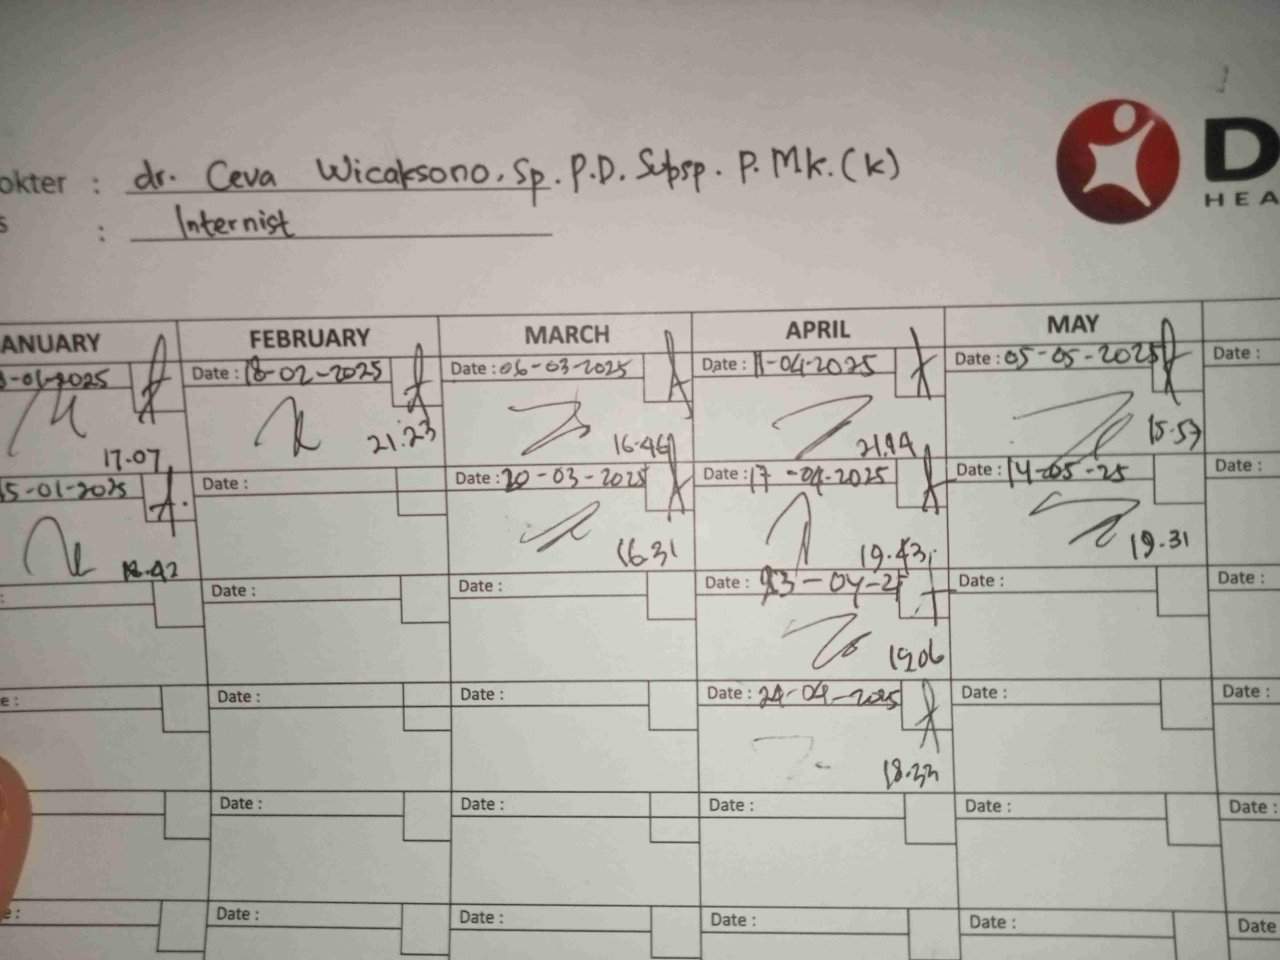 D
HEA
okter : dr. Ceva Wicaksono. Sp. P.D. Subsp. P. Mk. (k)
s : Internist
ANUARY FEBRUARY MARCH APRIL MAY
-01-2025 Date : 18-02-2025 Date : 06-03-2025 Date : 11-04-2025 Date : 05-05-2025 Date :
17.07 21.23 16.46 21.44 15.57
15-01-2025 Date : Date : 20-03-2025 Date : 17-04-2025 Date : 14-05-25 Date :
18.42 16.31 19.43 19.31
: Date : Date : Date : 23-04-25 Date : Date :
19.06
e : Date : Date : Date : 24-04-2025 Date : Date :
18.33
Date : Date : Date : Date : Date :
e : Date : Date : Date : Date : Date